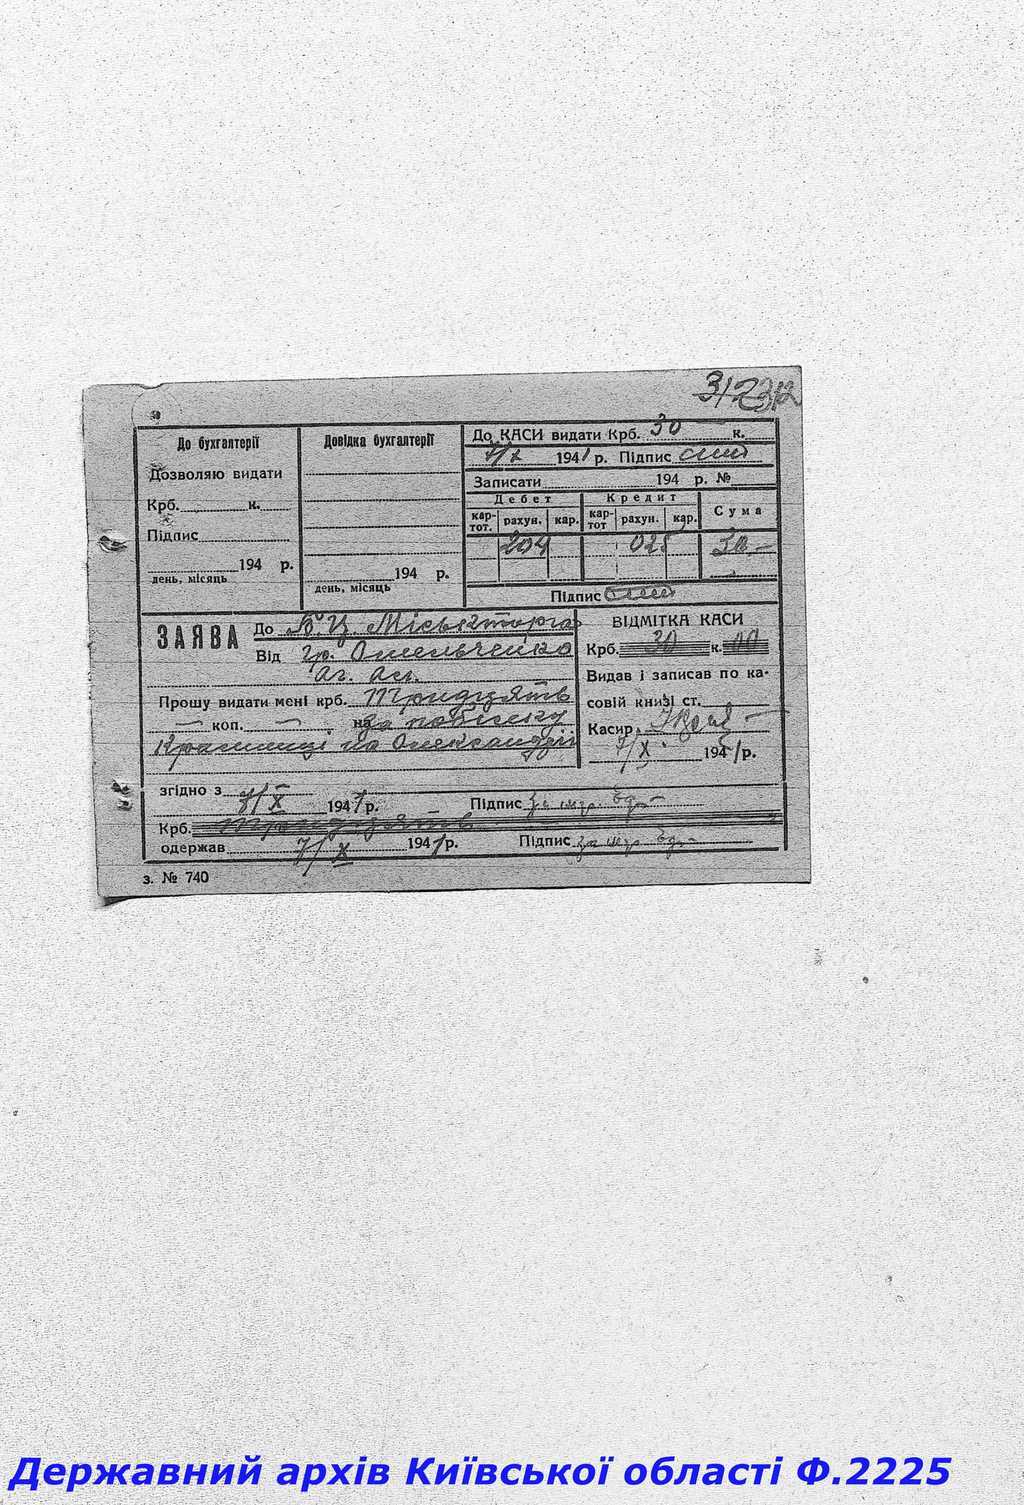 312 312
До бухгалтерії
Дозволяю видати
Крб. к.
Підпис
194 р.
день, місяць
Довідка бухгалтерії
194 р.
день, місяць
До КАСИ видати Крб. 30 к.
7/X 1941 р. Підпис
Записати 194 р. №
Дебет Кредит Сума
кар-тот. рахун. кар. кар-тот рахун. кар.
204 025 30.-
Підпис
ЗАЯВА До Б.Ц. Міськторга
Від гр. Омельченко
Прошу видати мені крб. Тридцять
— коп. — на за
на Олександрії
ВІДМІТКА КАСИ
Крб. 30 к. 00
Видав і записав по ка-
совій книзі ст.
Касир
7/X 1941 р.
згідно з
7/X 1941 р. Підпис за
Крб. Тридцять
одержав 7/X 1941 р. Підпис за
з. № 740
Державний архів Київської області Ф.2225